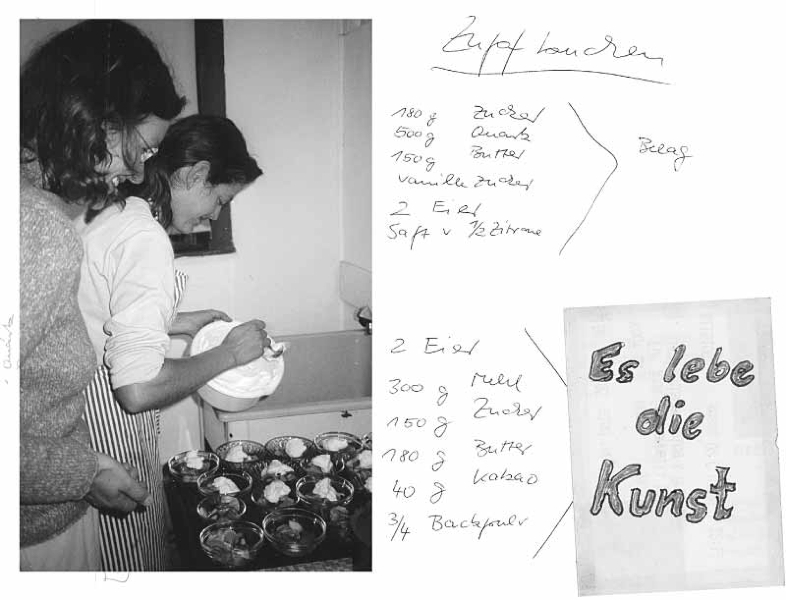 Zupfkuchen
180 g Zucker
500 g Quark
150 g Butter
Vanille Zucker
2 Eier
Saft v 1/2 Zitrone
Belag
2 Eier
300 g Mehl
150 g Zucker
180 g Butter
40 g Kakao
3/4 Backpulver
Es lebe
die
Kunst